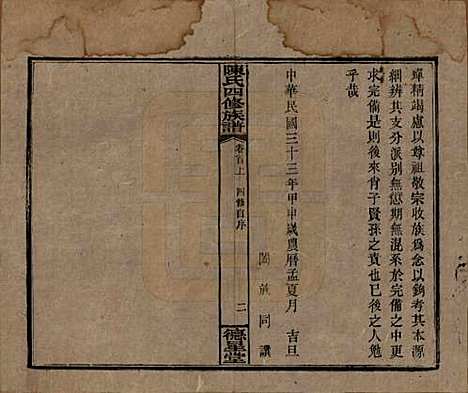 殫精竭慮以尊祖敬宗收族為念以鈎考其本源
細辨其支分派別無愆期無混系於完備之中更
求完備是則後來肖子賢孫之責也已後之人勉
乎哉
中華民國三十三年甲申歲農曆孟夏月 吉旦
闔族同譔
陳氏四修族譜
卷首上 四修自序
二
德星堂